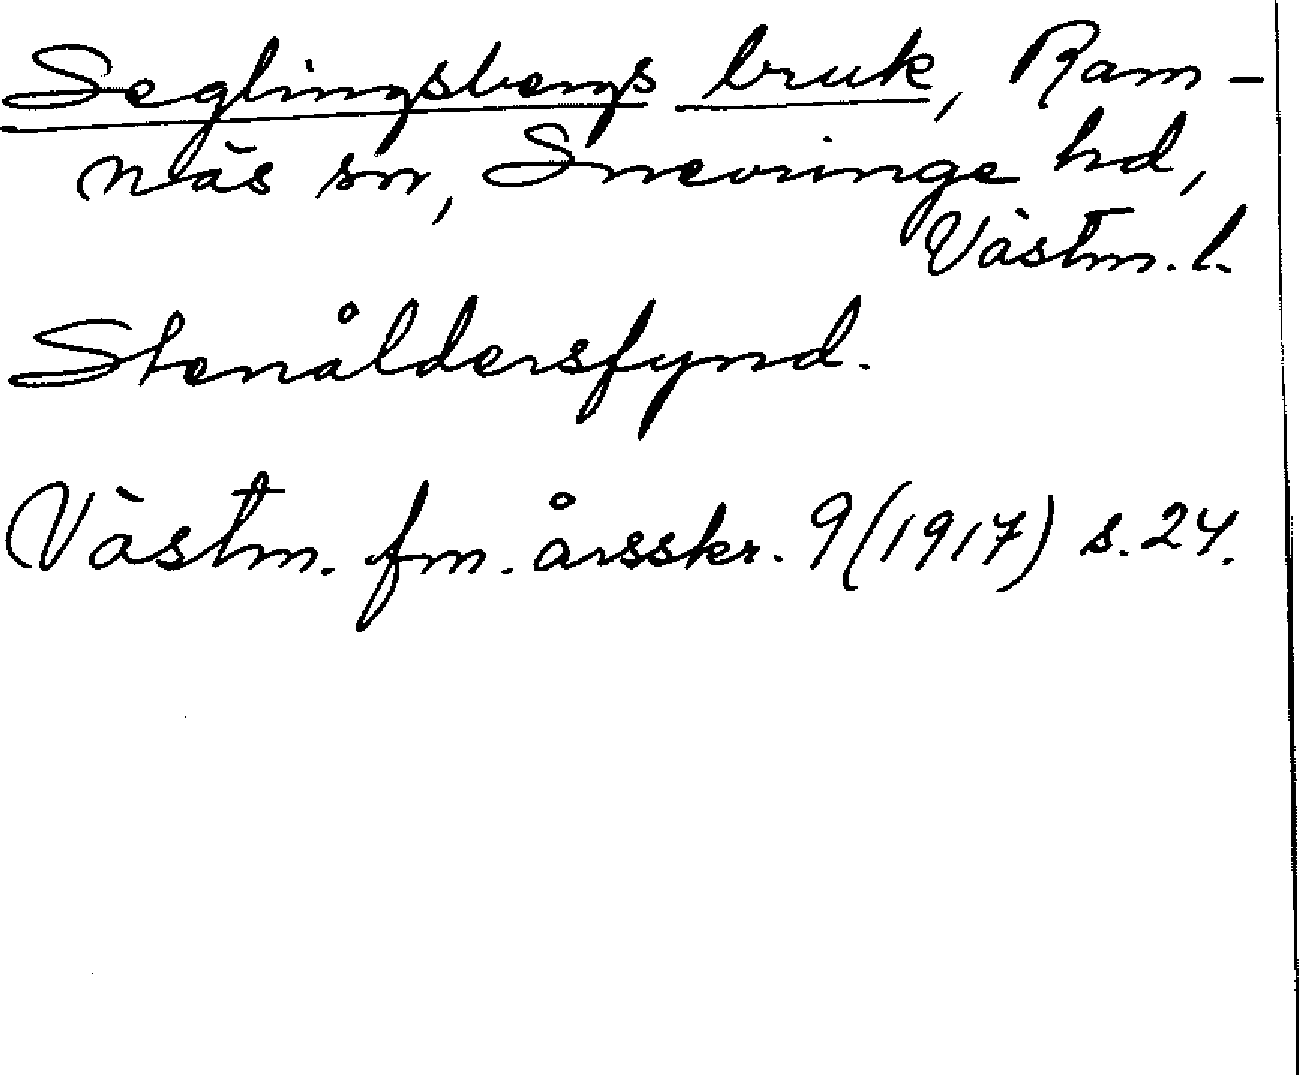 Seglingsbergs bruk, Ram-
näs sn, Snevringe hd,
Västm. l.
Stenåldersfynd.
Västm. fm. årsskr. 9 (1917) s. 24.